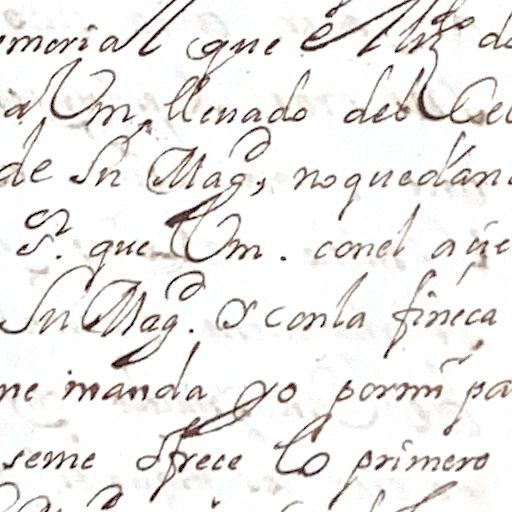 emorial que è
a Vm, llevado del Cel
de Sn Magd, noquedan
Sr. que Vm. conel a
Sn Magd. y conla fineca
me manda yo pormi pa
seme ofrece lo primero